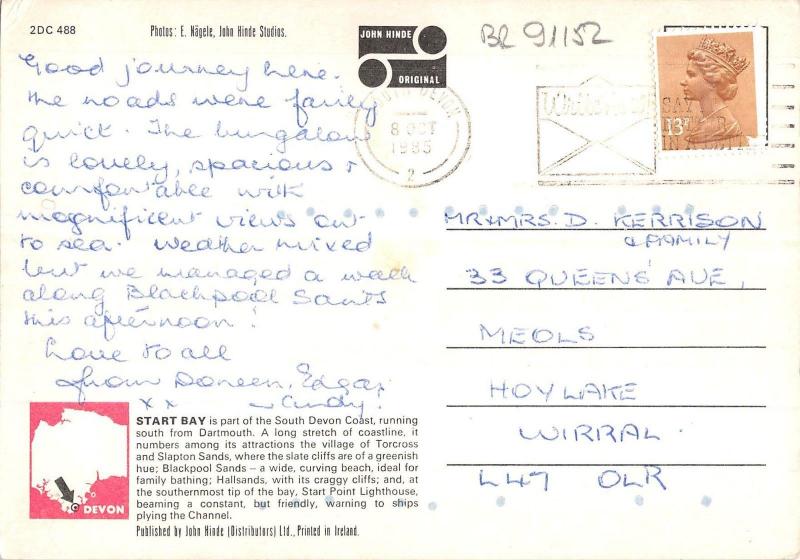 2DC 488
Photos: E. Nägele, John Hinde Studios.
JOHN HINDE
ORIGINAL
BR 91152
Good journey here.
The roads were fairly
quick. The bungalow
is lovely, spacious +
comfortable with
magnificent views out
to sea. Weather mixed
but we managed a walk
along Blackpool Sands
this afternoon!
Love to all
from Doreen, Edgar
x x
Cindy!
SOUTH DEVON
8 OCT
1985
2
SAY
IN
13P
MR & MRS. D. KERRISON
& FAMILY
33 QUEENS' AVE,
MEOLS
HOYLAKE
WIRRAL.
L47 0LR
DEVON
START BAY is part of the South Devon Coast, running
south from Dartmouth. A long stretch of coastline, it
numbers among its attractions the village of Torcross
and Slapton Sands, where the slate cliffs are of a greenish
hue; Blackpool Sands – a wide, curving beach, ideal for
family bathing; Hallsands, with its craggy cliffs; and, at
the southernmost tip of the bay, Start Point Lighthouse,
beaming a constant, but friendly, warning to ships
plying the Channel.
Published by John Hinde (Distributors) Ltd., Printed in Ireland.